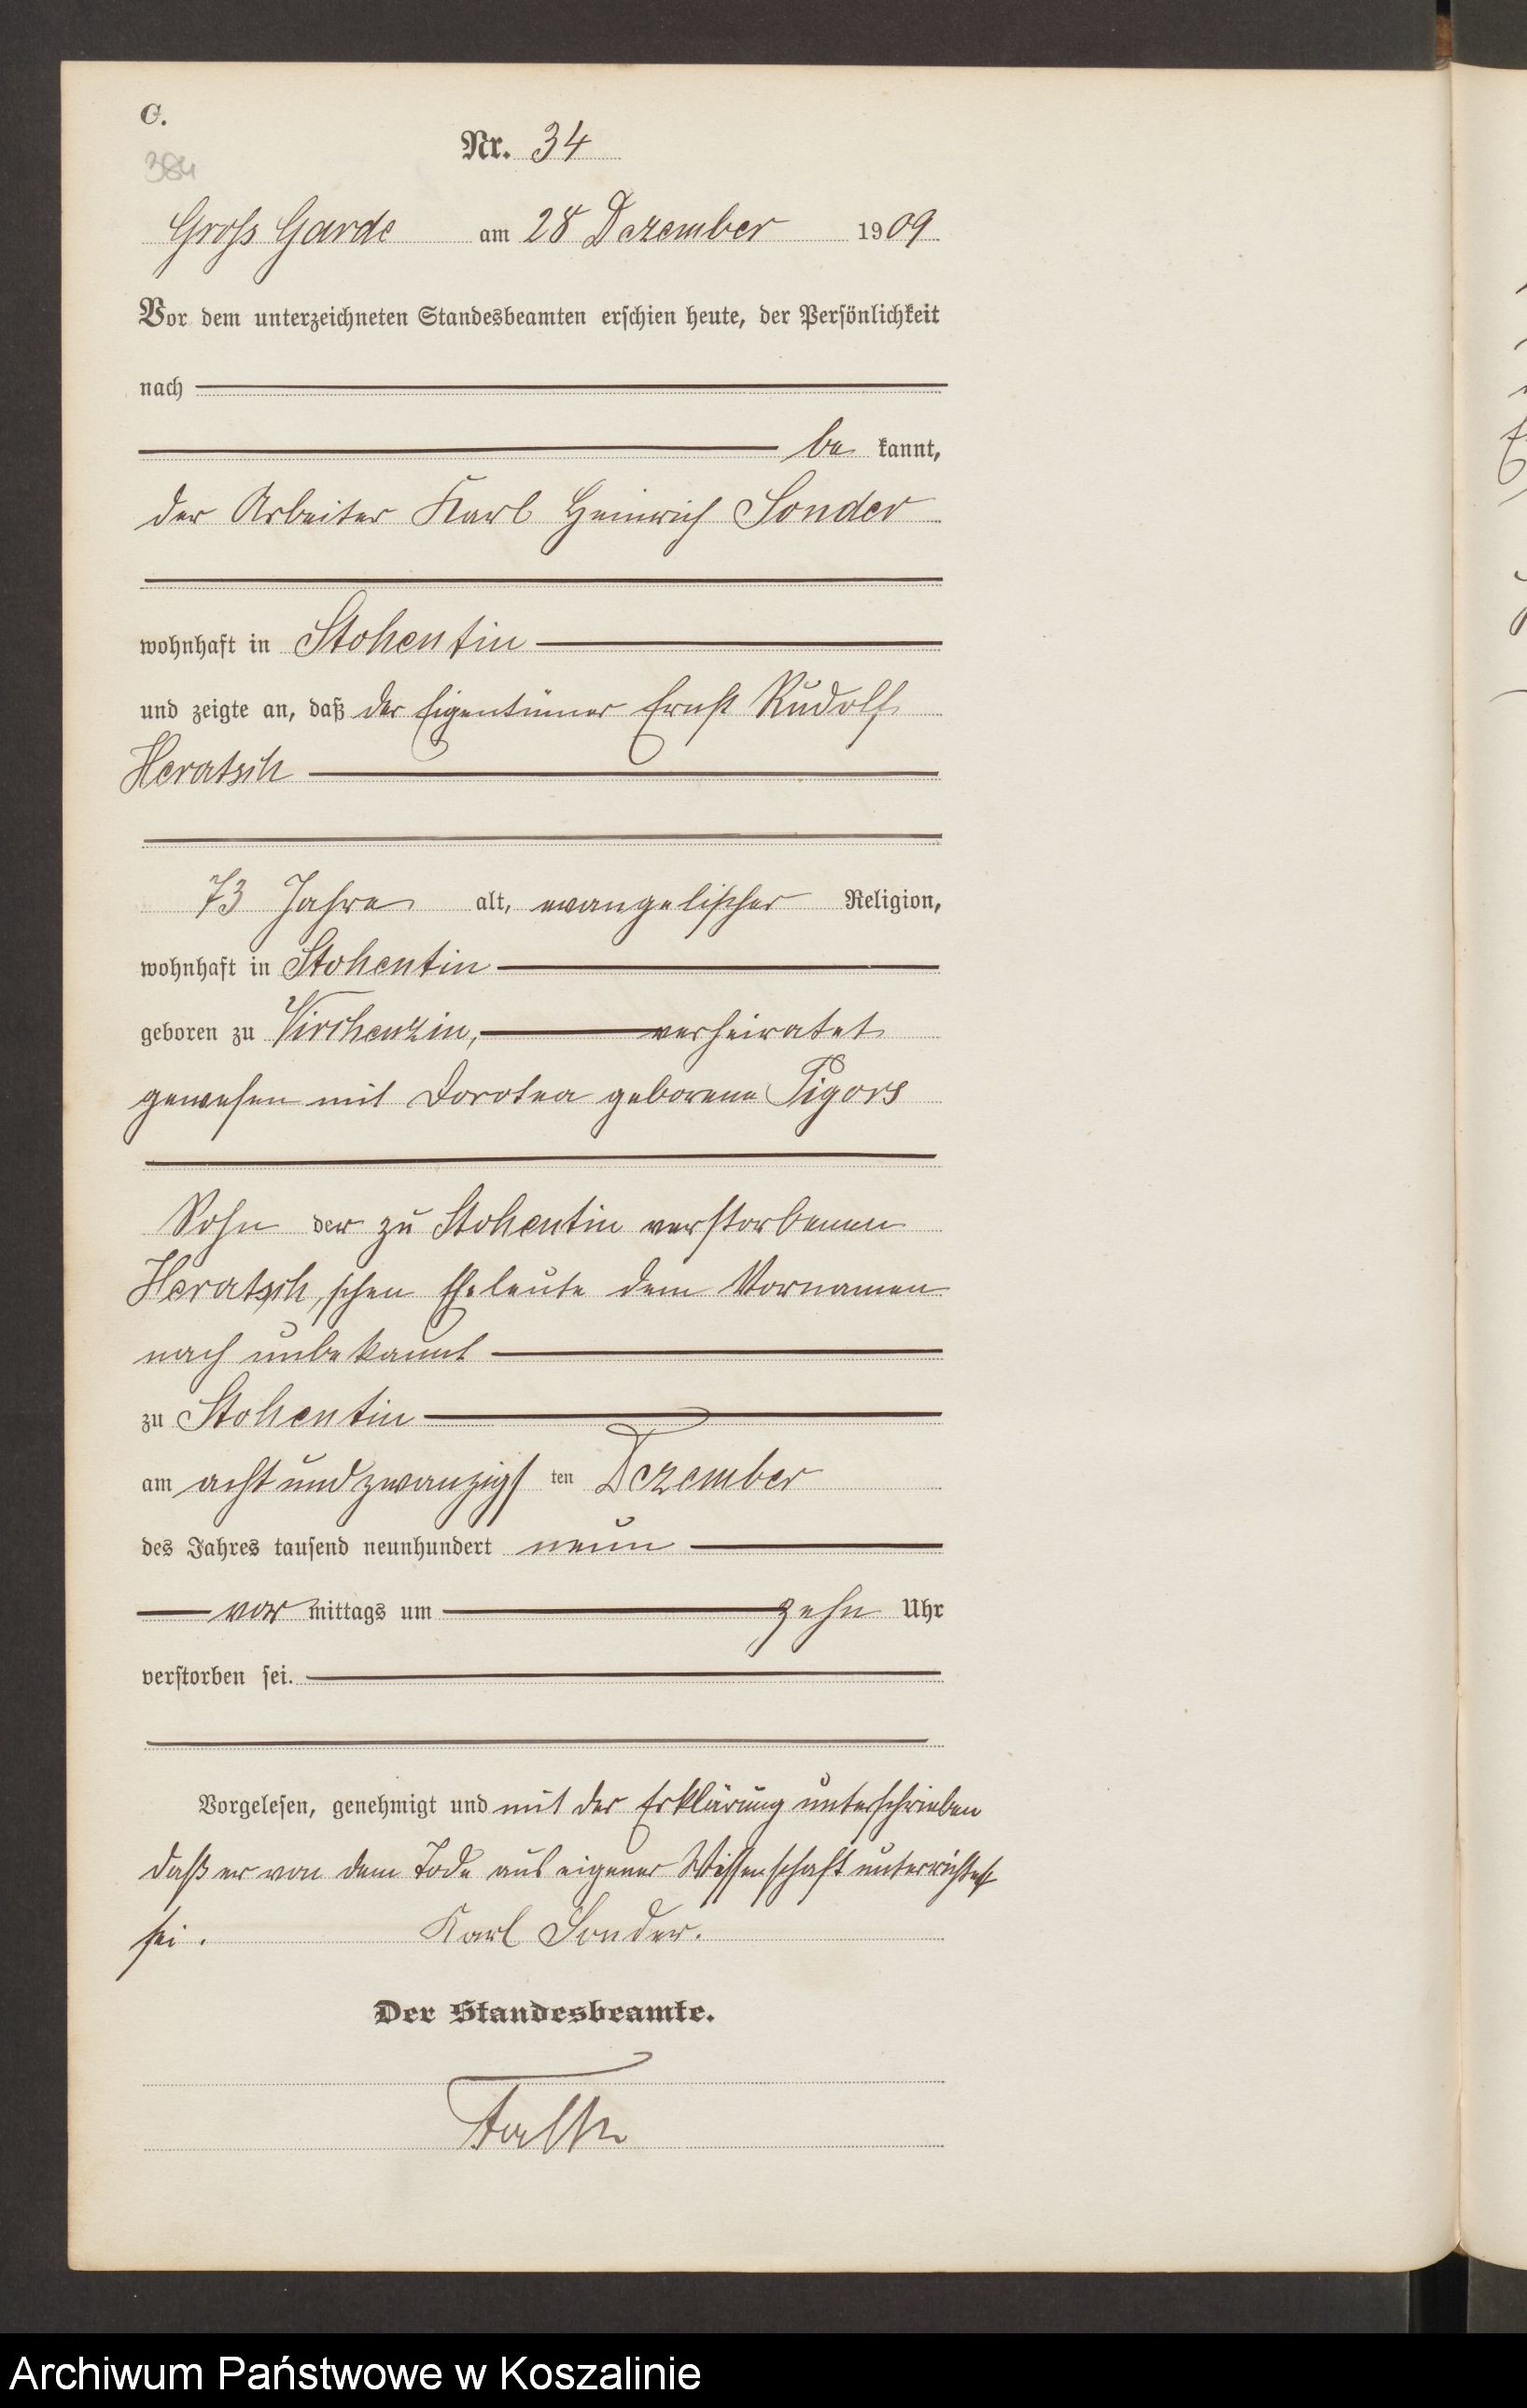 C.
384
Nr. 34
Gross Garde am 28 Dezember 1909
Vor dem unterzeichneten Standesbeamten erschien heute, der Persönlichkeit
nach
be kannt,
der Arbeiter Karl Heinrich Sonder
wohnhaft in Stohentin
und zeigte an, daß der Eigentümer Ernst Rudolf
Heratsch
73 Jahre alt, evangelischer Religion,
wohnhaft in Stohentin
geboren zu Virchenzin, verheiratet
gewesen mit Dorotea geborene Pigors
Sohn der zu Stohentin verstorbenen
Heratsch'schen Eheleute dem Vornamen
nach unbekannt
zu Stohentin
am acht und zwanzigs ten Dezember
des Jahres tausend neunhundert neun
vor mittags um zehn Uhr
verstorben sei.
Vorgelesen, genehmigt und mit der Erklärung unterschrieben
daß er von dem Tode aus eigener Wissenschaft unterrichtet
sei. Karl Sonder.
Der Standesbeamte.
Archiwum Państwowe w Koszalinie